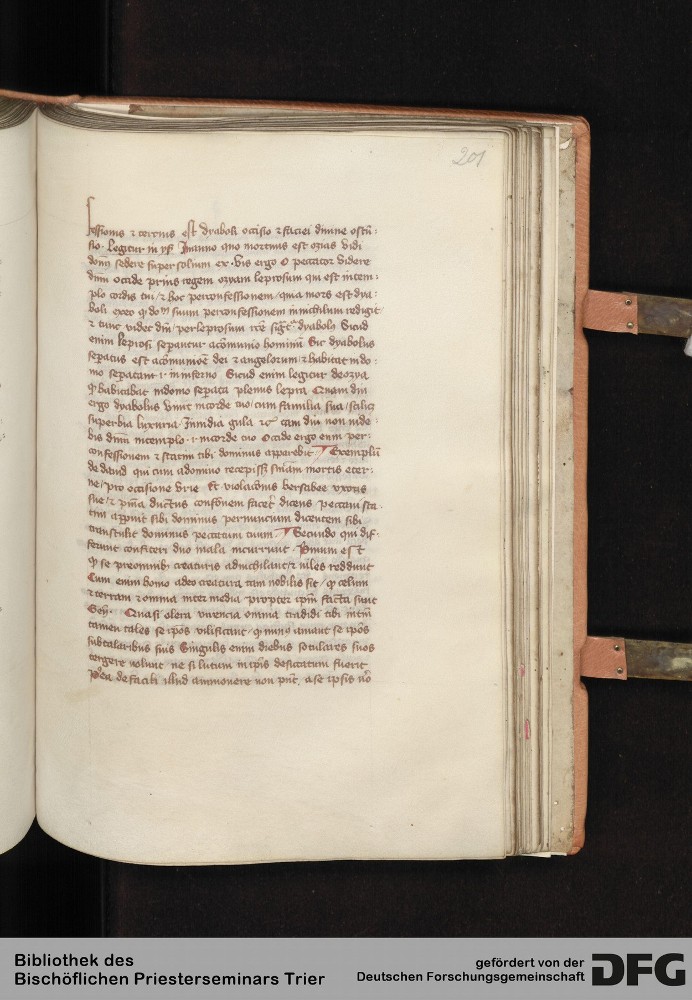 201
fessionis et tercius est dyaboli occisio et faciei divine osten-
sio. Legitur in ys. In anno quo mortuus est ozias vidi
dominum sedere super solium ex. vis ergo o peccator videre
dnm occide prius regem ozyam leprosum qui est in tem-
plo cordis tui / et hoc per confessionem / quia mors est dya-
boli exeo quod dom suum per confessionem in nichilum redigit
et tunc videt dnm / per leprosum recte sigt dyabolus Sicud
enim leprosi separantur a comunio hominum Sic dyabolus
separatus est a comunione dei et angelorum et habitat in do-
mo separatam .i. in inferno Sicud enim legitur de ozya
quod habitabat in domo separata plenus lepra Quam diu
ergo dyabolus vivit in corde tuo / cum familia sua / scilicet
superbia luxuria Invidia gula etc tam diu non vide-
bis dnm in templo .i. in corde tuo Occide ergo eum per
confessionem et statim tibi dominus apparebit Exemplum
de david qui cum a domino recepisset sniam mortis eter-
ne / pro occisione Urie Et violacionis bersabee uxoris
sue / et pnia ductus confessionem faceret dicens peccavi sta-
tim apparuit sibi dominus per nuncium dicentem sibi
transtulit dominus peccatum tuum Secundo qui dif-
ferunt confiteri duo mala incurrunt Primum est
quod se preominibus creaturis adnichilant / et viles reddunt
Cum enim homo adeo creatura tam nobilis sit / quod celum
et terram et omnia intermedia propter ipsum facta sunt
Gen. Quasi olera virencia omnia tradidi tibi
tamen tales se ipsos vilificant / quod minus amant se ipsos
subtalaribus suis Singulis enim diebus sotulares suos
tergere volunt ne si lutum in ipsis desiccatum fuerit
postea de facili illud ammovere non possunt, a se ipsis vero
Bibliothek des
Bischöflichen Priesterseminars Trier
gefördert von der
Deutschen Forschungsgemeinschaft
DFG